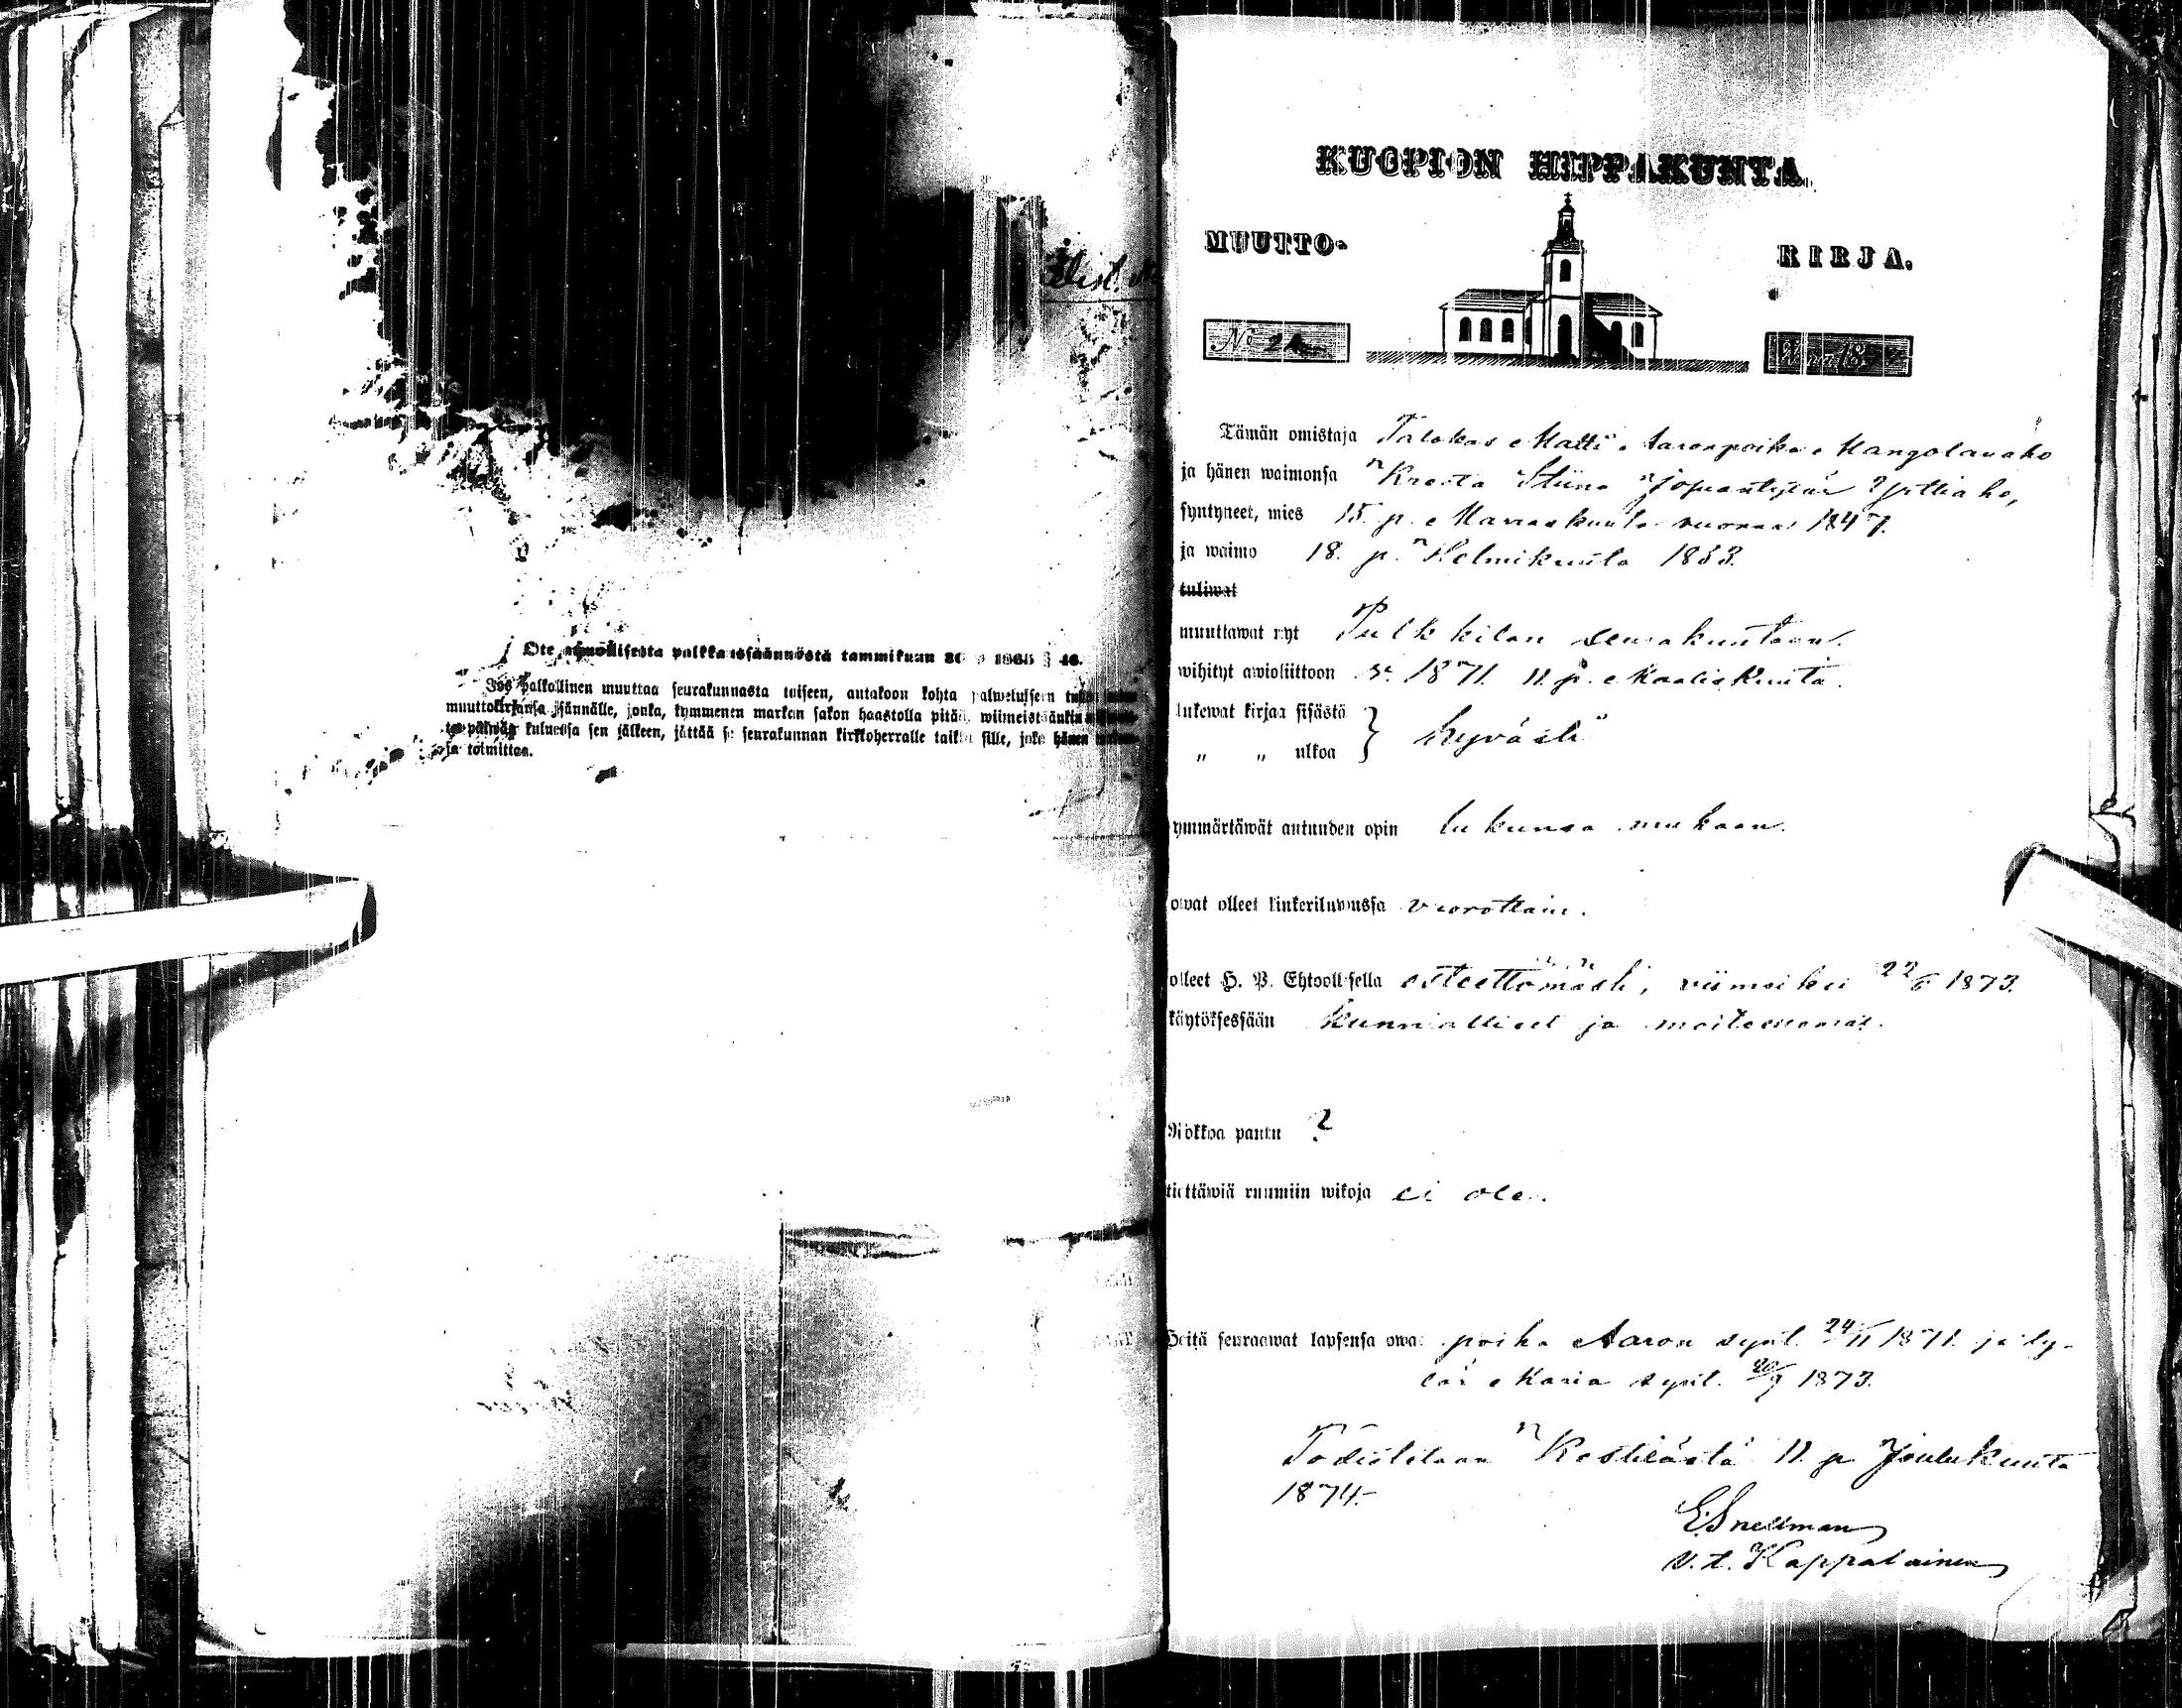 Ote armollisesta palkkaussäännöstä tammikuun 30 p 1865 § 46.
Jos palkollinen muuttaa seurakunnasta toiseen, antakoon kohta palwelukseen
muuttokirjansa isännälle, jonka, kymmenen markan sakon haastolla pitää, wiimeistäänkin
päiwän kuluessa sen jälkeen, jättää se seurakunnan kirkkoherralle taikka sille, joka hänen
toimittaa.
KUOPION HIPPAKUNTA.
MUUTTO-
KIRJA.
No 24
Wuo. 18
Tämän omistaja Talokas Matti Aaronpoika Kangolanaho
ja hänen waimonsa Kreeta Stiina Yrttiaho,
syntyneet, mies 15. p. Marraskuuta vuonna 1847.
ja waimo 18. p. Helmikuuta 1853.
tuliwat
muuttawat nyt Pulkkilan seurakuntaan.
wihityt awioliittoon v. 1871 11. p. Maaliskuuta.
lukewat kirjaa sisästä
„ „ ulkoa } hyvästi
ymmärtäwät autuuden opin lukunsa mukaan.
owat olleet kinkeriluwussa vuorottain.
olleet H. P. Ehtoollisella esteettömästi, viimeksi 22/6 1873.
käytöksessään kunnialliset ja moitteettomat.
Rokkoa pantu ?
tiettäwiä ruumiin wikoja ei ole.
Heitä seuraawat lapsensa owat poika Aaron synt. 24/11 1871. ja ty-
tär Maria synt. 20/9 1873.
Todistetaan Kestilästä 11. p Joulukuuta
1874.
E. Snellman
v. t. Kappalainen